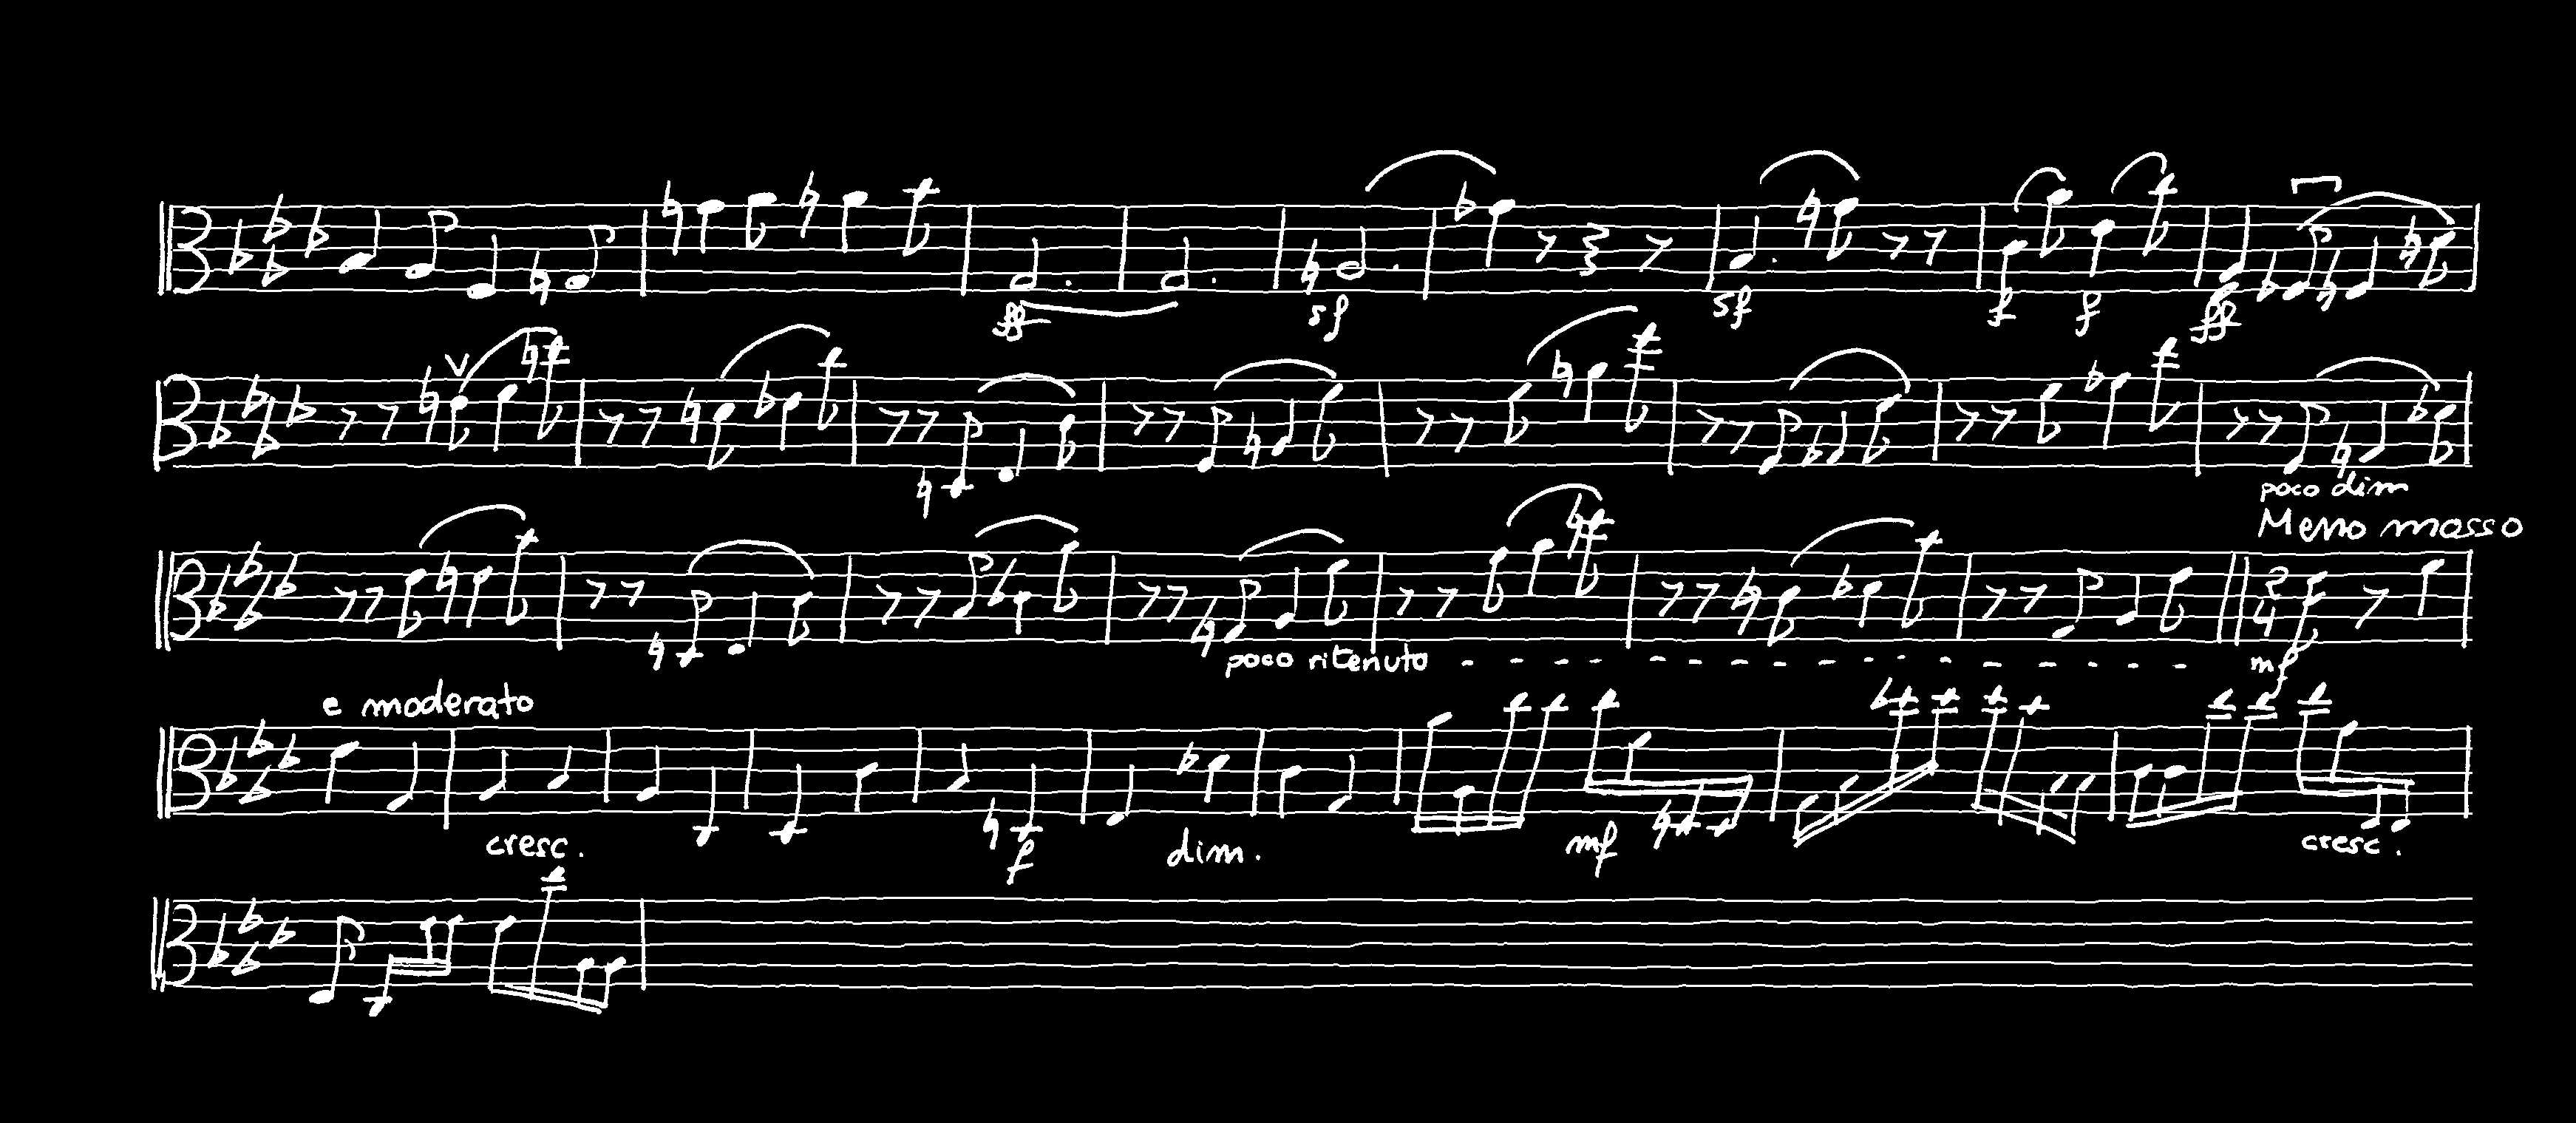 ff sf sf f f ff
poco dim
Meno mosso
poco ritenuto - - - - - - - - - - - - - - -
2
4
mf
e moderato
cresc. f dim. mf cresc.